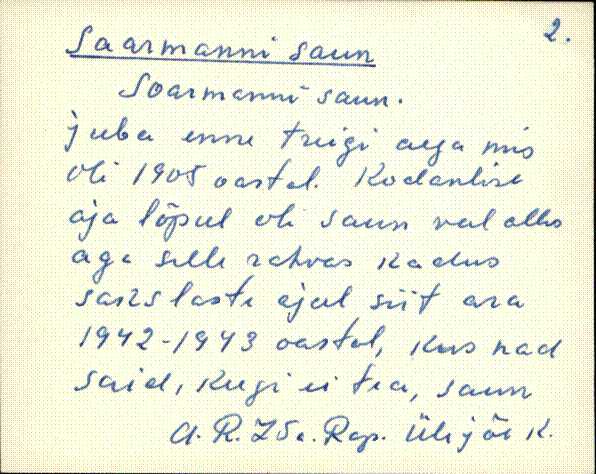 2.
Saarmanni saun
Soarmanni saun.
juba enne treigi aega mis
oli 1905 oastal. Kodanlise
aja lõpul oli saun veel alles
aga selle rahvas kadus
sakslaste ajal siit ara
1942-1943 oastal, kus nad
said, keegi ei tea, saun
A. R. Rap. Ülejõe k.